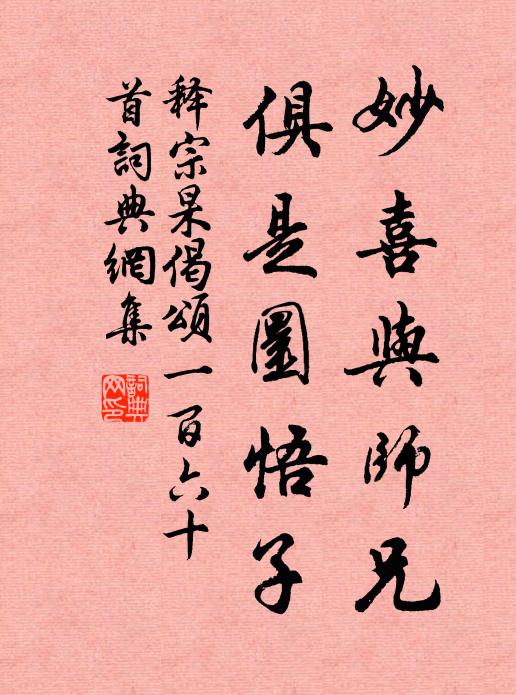 妙喜與師兄
俱是圜悟子
释宗杲偈頌一百六十
首詞典網集
詞典
网印